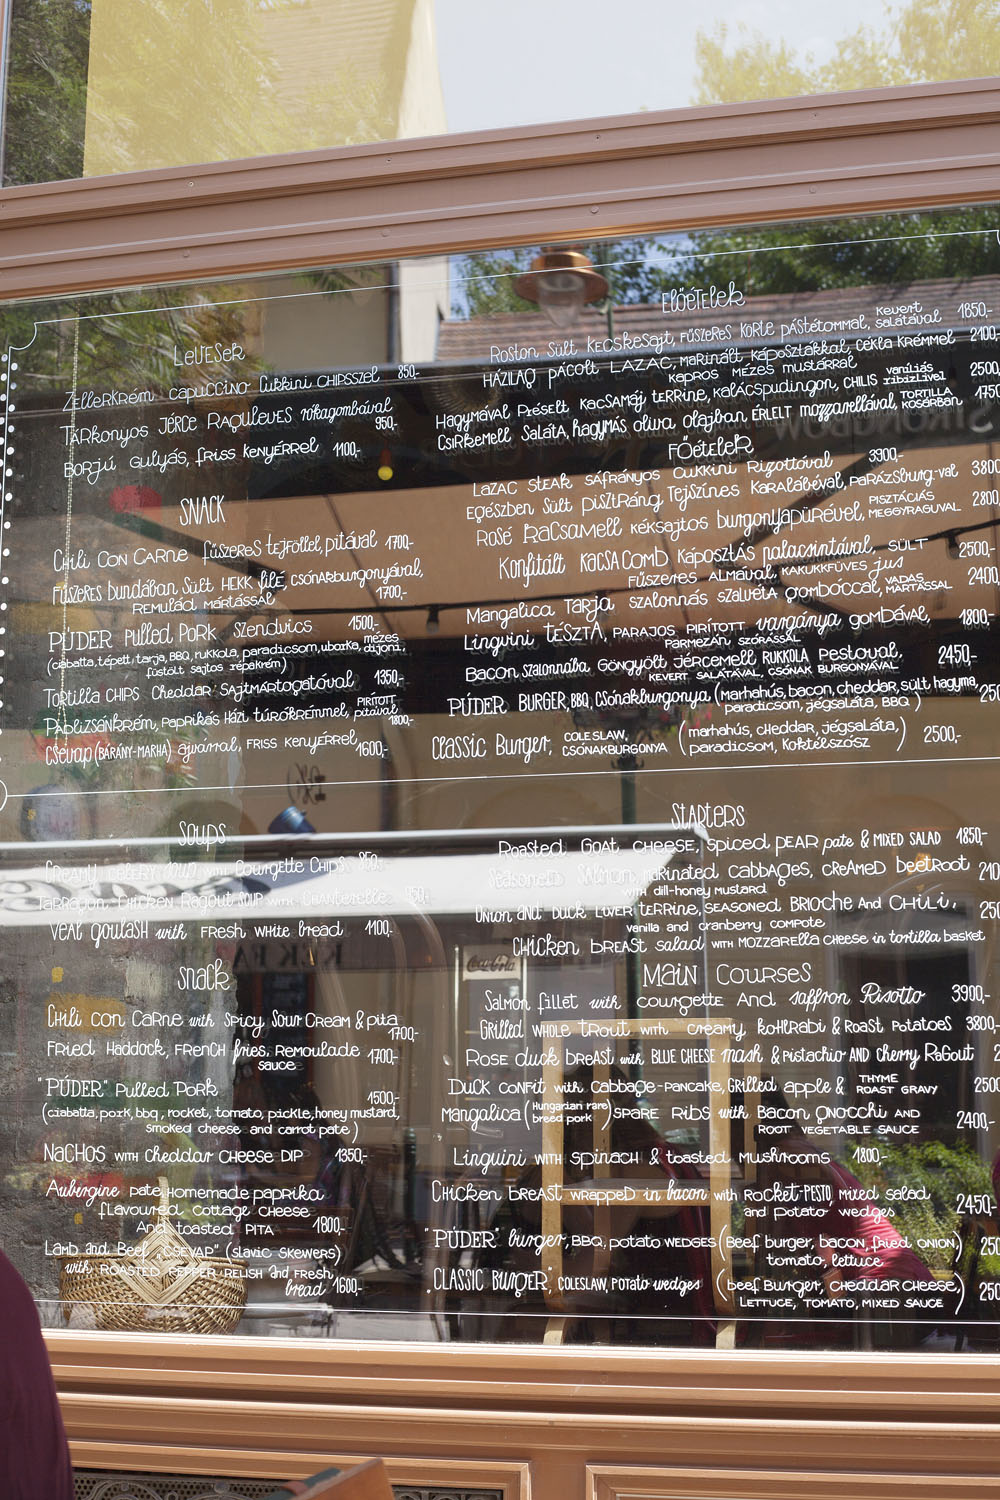 LEVESEK
Zellerkrém capuccino Cukkini CHIPSSZEL 850,-
TÁRKonyos JÉRCE RAGULEVES rókagombával
950,-
BORJÚ GULYÁS, friss kenyérrel 1100,-
SNACK
Chili CON CARNE fűszeres tejföllel, pitával 1700,-
FŰSZERES bundában Sült HEKK filé, csónakburgonyával,
REMULÁD MÁRTÁSSAL 1700,-
PÚDER Pulled PORK Szendvics 1500,-
(ciabatta, tépett, tarja, BBQ, rukkola, paradicsom, uborka, mézes dijoni,
füstölt sajtos répakrém)
Tortilla CHIPS Cheddar SAJTMÁRTOGATÓVAL 1350,-
Padlizsánkrém, PAPRIKÁS HÁZI túrókrémmel, PIRÍTOTT pitával
1800,-
Csevap (BÁRÁNY-MARHA) ajvárral, FRISS Kenyérrel 1600,-
ELŐÉTELEK
Roston Sült Kecskesajt, FŰSZERES KÖRTE PÁSTÉTOMMAL, Kevert salátával 1850,-
HÁZILAG pácolt LAZAC, marinált káposztákkal, cékla krémmel 2100,-
KAPROS MÉZES mustárral
Hagymával Préselt KACSAMÁJ TERRINE, KALÁCSPUDINGON, CHILIS vaníliás ribizlivel 2500,
CSIRKEMELL SALÁTA, hagymás olíva olajban ÉRLELT mozzarellával, TORTILLA KOSÁRBAN 1750
FŐÉTELEK
LAZAC STEAK SÁFRÁNYOS Cukkini Rizottóval 3900,-
EGÉSZBEN Sült PISZTRÁNG, TEJSZÍNES KARALÁBÉVAL, PARÁZSBURG-val 3800
ROSÉ KACSAMELL KÉKSAJTOS burgonyapürével, PISZTÁCIÁS MEGGYRAGUVAL 2800,
Konfitált KACSACOMB KÁPOSZTÁS palacsintával, SÜLT 2500,-
FŰSZERES ALMÁVAL, KAKUKKFÜVES jus
Mangalica TARJA SZALONNÁS SZALVÉTA gombóccal, VADAS MÁRTÁSSAL 2400,
Linguini TÉSZTA, PARAJOS, PIRÍTOTT vargánya gombával, 1800,-
PARMEZÁN, SZÓRÁSSAL
Bacon szalonnába Göngyölt JÉRCEMELL RUKKOLA Pestoval, 2450,-
KEVERT SALÁTÁVAL, CSÓNAK BURGONYÁVAL
PÚDER BURGER, BBQ, CSónakburgonya (Marhahús, bacon, cheddar, sült, hagyma, 250
paradicsom, jégsaláta, BBQ)
Classic Burger, COLESLAW, CSÓNAKBURGONYA (marhahús, cheddar, jégsaláta, paradicsom, koktélszósz) 2500,-
Soups
Creamy celery soup with Courgette Chips 850,-
Tarragon, Chicken Ragout SOUP WITH Chanterelle 950,-
Veal goulash with FRESH WHITE bread 1100,-
Snack
Chili con Carne with Spicy Sour Cream & pita
1700,-
Fried Haddock, FRENCH fries, Remoulade 1700,-
sauce
"PÚDER" Pulled Pork 1500,-
(ciabatta, pork, bbq, rocket, tomato, pickle, honey mustard,
smoked cheese and carrot pate)
NACHOS WITH Cheddar CHEESE DIP 1350,-
Aubergine pate, Homemade paprika
flavoured cottage cheese
And toasted PITA 1800,-
Lamb and Beef "CSEVAP" (Slavic skewers)
with ROASTED PEPPER RELISH and FRESH
bread 1600,-
STARTERS
Roasted GOAT CHEESE, Spiced PEAR pate & MIXED SALAD 1850,-
Seasoned Salmon, marinated Cabbages, creamed beetroot 210
WITH dill-honey MUSTARD
Onion and Duck LIVER TERRINE, SEASONED BRIOCHE And CHILI, 250
vanilla and cranberry compote
CHicken breast salad WITH MOZZARELLA CHEESE in tortilla basket
MAIN COURSES
Salmon fillet with courgette And saffron Risotto 3900,-
Grilled WHOLE TROUT WITH creamy kohlrabi & Roast Potatoes 3800,
Rose duck breast with BLUE CHEESE mash & pistachio AND cherry Ragout 2
DUCK CONFIT with Cabbage-Pancake, Grilled apple & THYME ROAST GRAVY 2500
Mangalica (Hungarian rare breed pork) SPARE RIBS with Bacon GNOCCHI AND 2400,-
ROOT VEGETABLE SAUCE
Linguini WITH SPINACH & toasted Mushrooms 1800,-
Chicken breast WRAPPED in bacon with ROCKET-PESTO, mixed salad 2450,-
and potato wedges
"PÚDER" burger, BBQ, potato WEDGES (Beef burger, bacon, fried ONION, 250
tomato, lettuce
"CLASSIC BURGER", COLESLAW, POTATO wedges (beef Burger, CHEDDAR CHEESE, 250
LETTUCE, TOMATO, MIXED SAUCE)
Coca-Cola
STRONGBOW